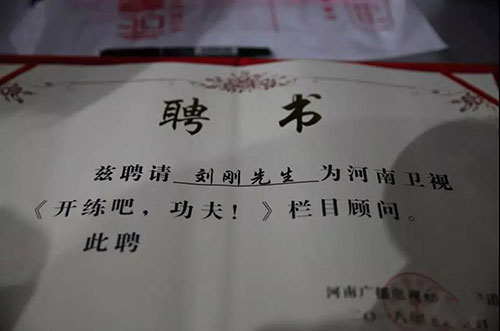 聘书
兹聘请 刘刚先生 为河南卫视
《开练吧，功夫！》栏目顾问。
此聘
河南广播电视